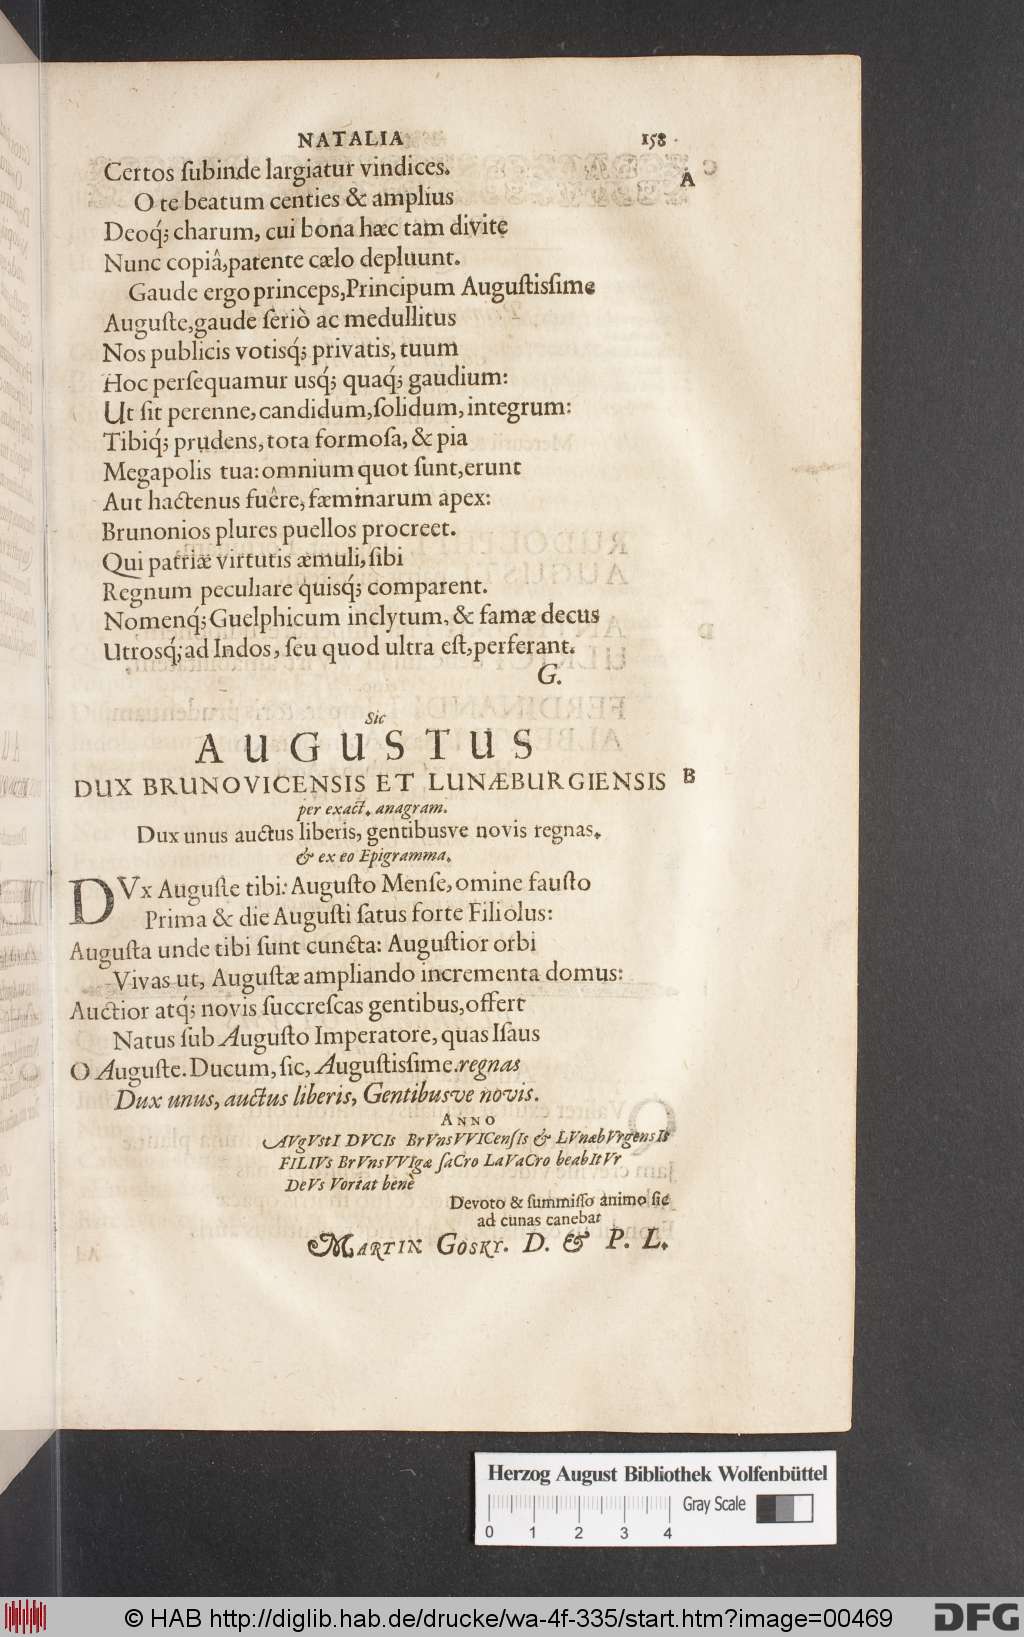 NATALIA 158
A
Certos ſubinde largiatur vindices.
O te beatum centies & amplius
Deoq́; charum, cui bona hæc tam divite
Nunc copiâ, patente cælo depluunt.
Gaude ergo princeps, Principum Auguſtisſime
Auguſte, gaude ſeriò ac medullitus
Nos publicis votisq́; privatis, tuum
Hoc perſequamur usq́; quaq́; gaudium:
Ut ſit perenne, candidum, ſolidum, integrum:
Tibiq́; prudens, tota formoſa, & pia
Megapolis tua: omnium quot ſunt, erunt
Aut hactenus fuêre, fæminarum apex:
Brunonios plures puellos procreet.
Qui patriæ virtutis æmuli, ſibi
Regnum peculiare quisq́; comparent.
Nomenq́; Guelphicum inclytum, & famæ decus
Utrosq́; ad Indos, ſeu quod ultra eſt, perferant.
G.
Sic
AUGUSTUS
DUX BRUNOVICENSIS ET LUNÆBURGIENSIS B
per exact. anagram.
Dux unus auctus liberis, gentibusve novis regnas.
& ex eo Epigramma.
DVx Auguſte tibi: Auguſto Menſe, omine fauſto
Prima & die Auguſti ſatus forte Filiolus:
Auguſta unde tibi ſunt cuncta: Auguſtior orbi
Vivas ut, Auguſtæ ampliando incrementa domus:
Auctior atq́; novis ſuccreſcas gentibus, offert
Natus ſub Auguſto Imperatore, quas Iſaus
O Auguſte. Ducum, ſic, Auguſtisſime. regnas
Dux unus, auctus liberis, Gentibusve novis.
ANNO
AVgVstI DVCIs BrVnsVVICenſIs & LVnæbVrgensIs
FILIVs BrVnsVVIgæ ſaCro LaVaCro beabItVr
DeVs Vortat benè
Devoto & ſummiſſo animo ſic
ad cunas canebat
MARTIN GOSKY. D. & P. L.
Herzog August Bibliothek Wolfenbüttel
Gray Scale
0 1 2 3 4
© HAB http://diglib.hab.de/drucke/wa-4f-335/start.htm?image=00469
DFG